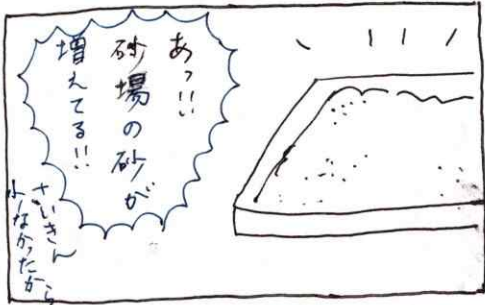 あっ!!
砂場の砂が
増えてる!!
さいきん
少なかったから